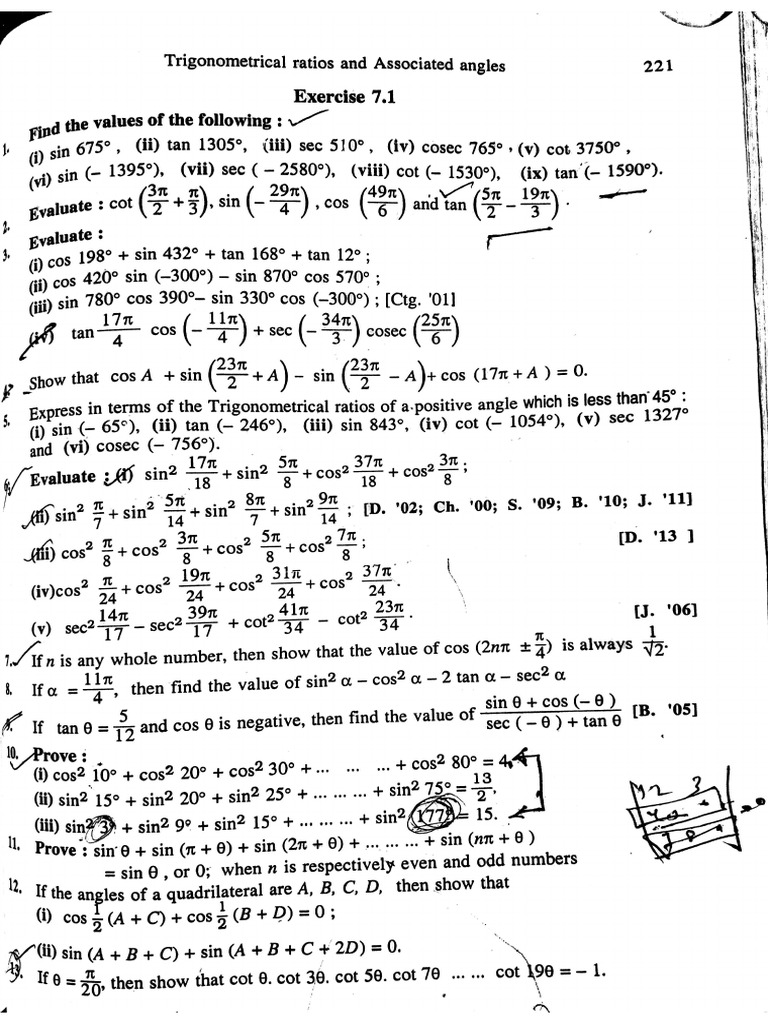 Trigonometrical ratios and Associated angles 221
Exercise 7.1
Find the values of the following :
1. (i) sin 675°, (ii) tan 1305°, (iii) sec 510°, (iv) cosec 765°, (v) cot 3750°,
(vi) sin (– 1395°), (vii) sec ( – 2580°), (viii) cot (– 1530°), (ix) tan (– 1590°).
2. Evaluate : cot (3π/2 + π/3), sin (– 29π/4), cos (49π/6) and tan (5π/2 – 19π/3).
3. Evaluate :
(i) cos 198° + sin 432° + tan 168° + tan 12° ;
(ii) cos 420° sin (–300°) – sin 870° cos 570° ;
(iii) sin 780° cos 390°– sin 330° cos (–300°) ; [Ctg. '01]
(iv) tan 17π/4 cos (– 11π/4) + sec (– 34π/3) cosec (25π/6)
Show that cos A + sin (23π/2 + A) – sin (23π/2 – A) + cos (17π + A ) = 0.
5. Express in terms of the Trigonometrical ratios of a positive angle which is less than 45° :
(i) sin (– 65°), (ii) tan (– 246°), (iii) sin 843°, (iv) cot (– 1054°), (v) sec 1327°
and (vi) cosec (– 756°).
6. Evaluate : (i) sin² 17π/18 + sin² 5π/8 + cos² 37π/18 + cos² 3π/8 ;
(ii) sin² π/7 + sin² 5π/14 + sin² 8π/7 + sin² 9π/14 ; [D. '02; Ch. '00; S. '09; B. '10; J. '11]
(iii) cos² π/8 + cos² 3π/8 + cos² 5π/8 + cos² 7π/8 ; [D. '13 ]
(iv)cos² π/24 + cos² 19π/24 + cos² 31π/24 + cos² 37π/24 .
(v) sec² 14π/17 – sec² 39π/17 + cot² 41π/34 – cot² 23π/34 . [J. '06]
7. If n is any whole number, then show that the value of cos (2nπ ± π/4) is always 1/√2.
8. If α = 11π/4, then find the value of sin² α – cos² α – 2 tan α – sec² α
9. If tan θ = 5/12 and cos θ is negative, then find the value of sin θ + cos (– θ ) / sec ( – θ ) + tan θ [B. '05]
10. Prove :
(i) cos² 10° + cos² 20° + cos² 30° + ... ... ... + cos² 80° = 4,
(ii) sin² 15° + sin² 20° + sin² 25° + ... ... ... + sin² 75° = 13/2,
(iii) sin² 3° + sin² 9° + sin² 15° + ... ... ... + sin² 177° = 15.
11. Prove : sin θ + sin (π + θ) + sin (2π + θ) + ... ... ... + sin (nπ + θ )
= sin θ , or 0; when n is respectively even and odd numbers
12. If the angles of a quadrilateral are A, B, C, D, then show that
(i) cos 1/2 (A + C) + cos 1/2 (B + D) = 0 ;
(ii) sin (A + B + C) + sin (A + B + C + 2D) = 0.
13. If θ = π/20, then show that cot θ. cot 3θ. cot 5θ. cot 7θ ... ... cot 19θ = – 1.